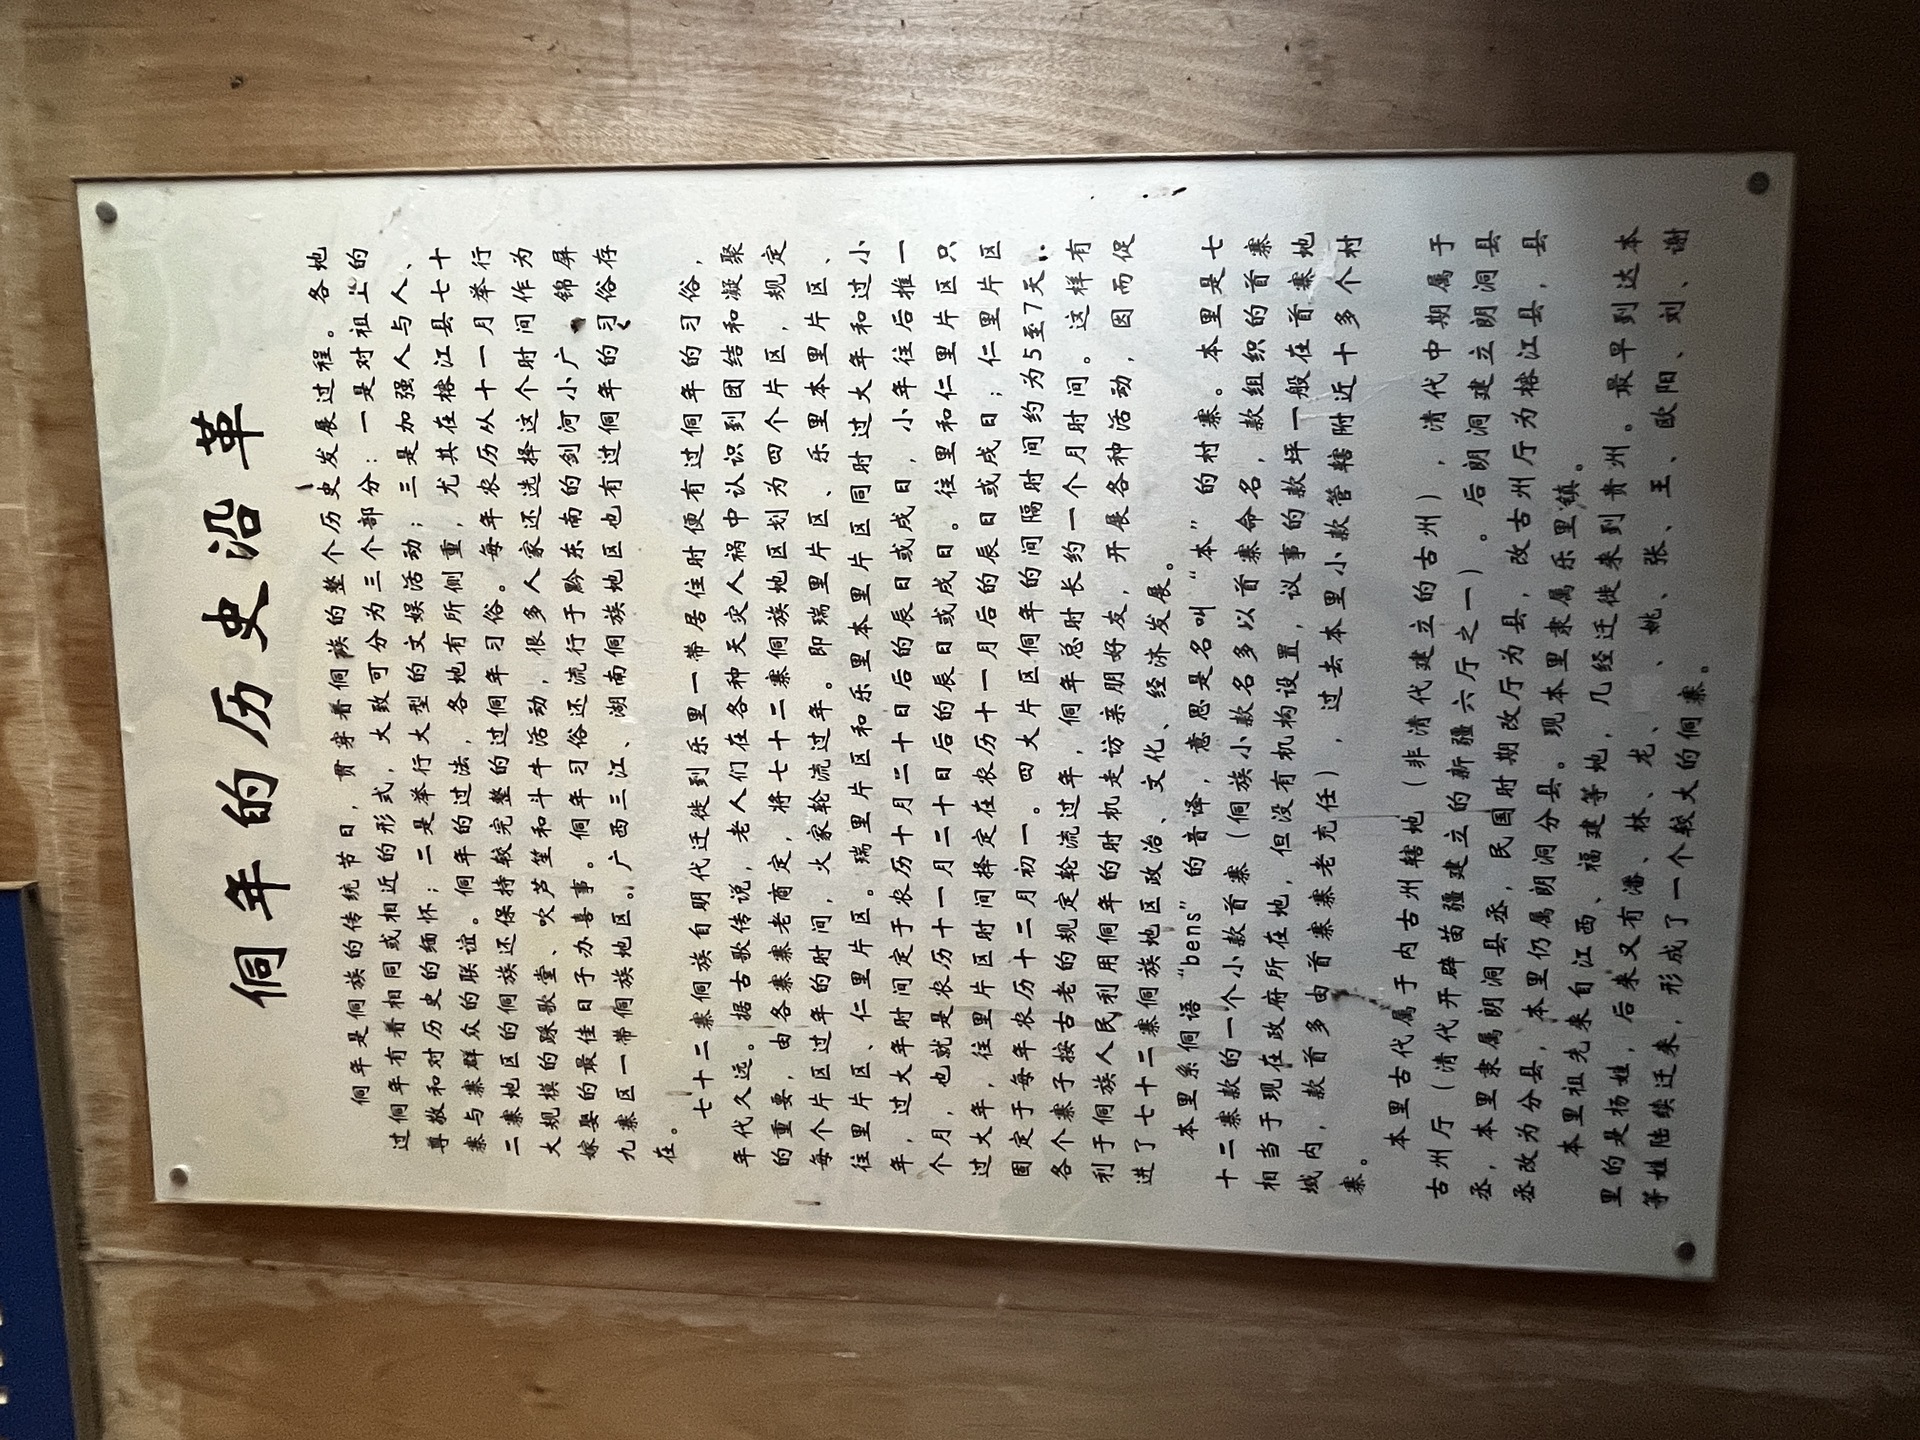 侗年的历史沿革
侗年是侗族的传统节日，贯穿着侗族的整个历史发展过程。各地
过侗年有着相同或相近的形式，大致可分为三个部分：一是对祖上的
尊敬和对历史的缅怀；二是举行大型的文娱活动；三是加强人与人、
寨与寨群众的联谊。侗年的过法，各地有所侧重，尤其在榕江县七十
二寨地区的侗族还保持较完整的过侗年习俗。每年农历从十一月举行
大规模的踩歌堂、吹芦笙和斗牛活动，很多人家还选择这个时间作为
嫁娶的最佳日子办喜事。侗年习俗还流行于黔东南的剑河小广、锦屏
九寨区一带侗族地区。广西三江、湖南侗族地区也有过侗年的习俗存
在。
七十二寨侗族自明代迁徙到乐里一带居住时便有过侗年的习俗，
年代久远。据古歌传说，老人们在各种天灾人祸中认识到团结和凝聚
的重要，由各寨寨老商定，将七十二寨侗族地区划为四个片区，规定
每个片区过年的时间，大家轮流过年。即瑞里片区、乐里本里片区、
往里片区、仁里片区。瑞里片区和乐里本里片区同时过大年和过小
年，过大年时间定于农历十月二十日后的辰日或戌日，小年往后推一
个月，也就是农历十一月二十日后的辰日或戌日。往里和仁里片区只
过大年，往里片区时间择定在农历十一月后的辰日或戌日；仁里片区
固定于每年农历十二月初一。四大片区侗年的间隔时间约为5至7天。
各个寨子按古老的规定轮流过年，侗年总时长约一个月时间。这样有
利于侗族人民利用侗年的时机走访亲朋好友，开展各种活动，因而促
进了七十二寨侗族地区政治、文化、经济发展。
本里系侗语“bens”的音译，意思是名叫“本”的村寨。本里是七
十二寨款的一个小款首寨（侗族小款名多以首寨命名，款组织的首寨
相当于现在政府所在地，但没有机构设置，议事的款坪一般在首寨地
域内，款首多由首寨寨老充任），过去本里小款管辖附近十多个村
寨。
本里古代属于内古州辖地（非清代建立的古州），清代中期属于
古州厅（清代开辟苗疆建立的新疆六厅之一）。后朗洞建立朗洞县
丞，本里隶属朗洞县丞，民国时期改厅为县，改古州厅为榕江县，县
丞改为分县，本里仍属朗洞分县。现本里隶属乐里镇。
本里祖先来自江西、福建等地，几经迁徙来到贵州。最早到达本
里的是杨姓，后来又有潘、林、龙、、姚、张、王、欧阳、刘、谢
等姓陆续迁来，形成了一个较大的侗寨。